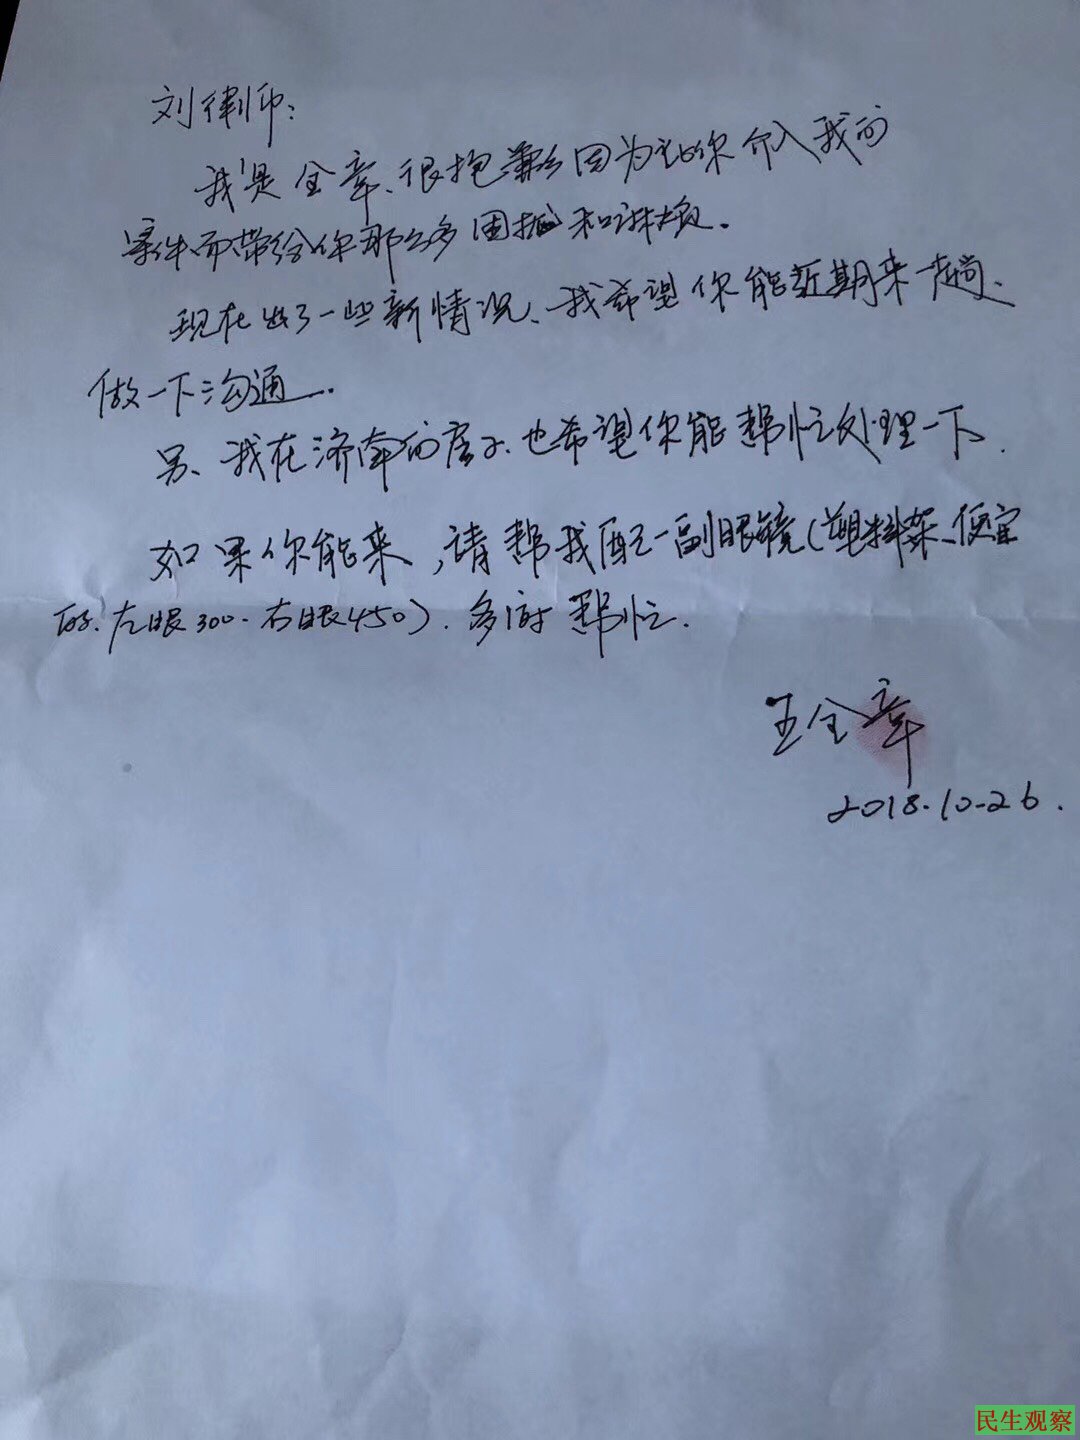 刘律师:
我是全章、很抱歉因为让你介入我的
案件而带给你那么多困扰和
现在出了一些新情况、我希望你能近期来一趟、
做一下沟通.
另、我在济南的房子、也希望你能帮忙处理一下.
如果你能来,请帮我配一副眼镜(塑料架、便宜
的、左眼300.右眼450).多谢帮忙.
王全章
2018.10-26.
民生观察